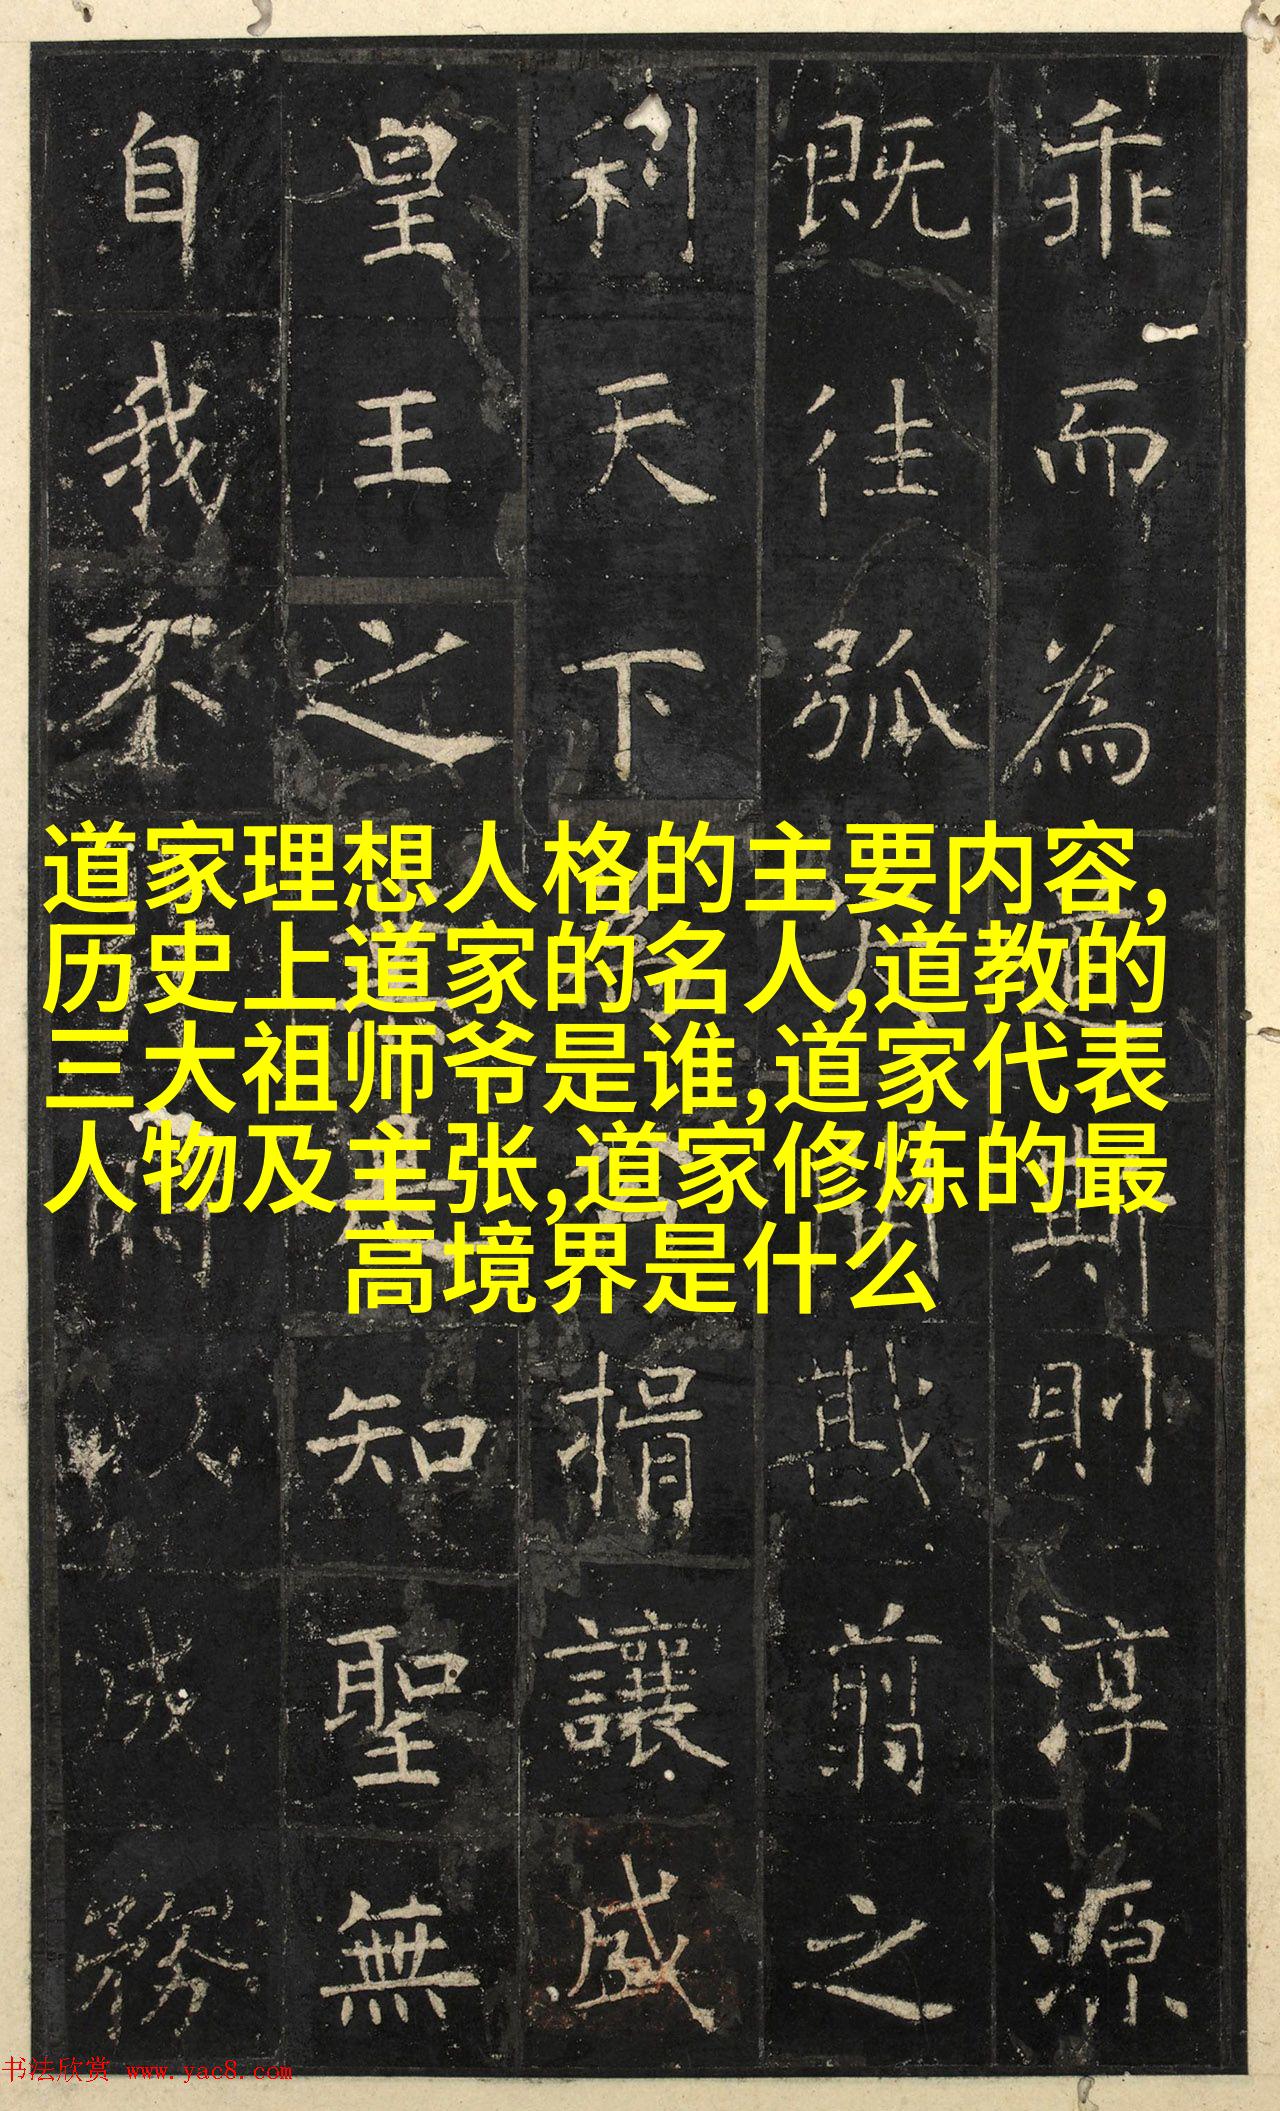 乖而為典則淳源
既往弧開戡翦之
利天下為揖讓盛
皇王之知聖無
自我不時以成務
道家理想人格的主要内容,
历史上道家的名人,道教的
三大祖师爷是谁,道家代表
人物及主张,道家修炼的最
高境界是什么
书法欣赏 www.yac8.com